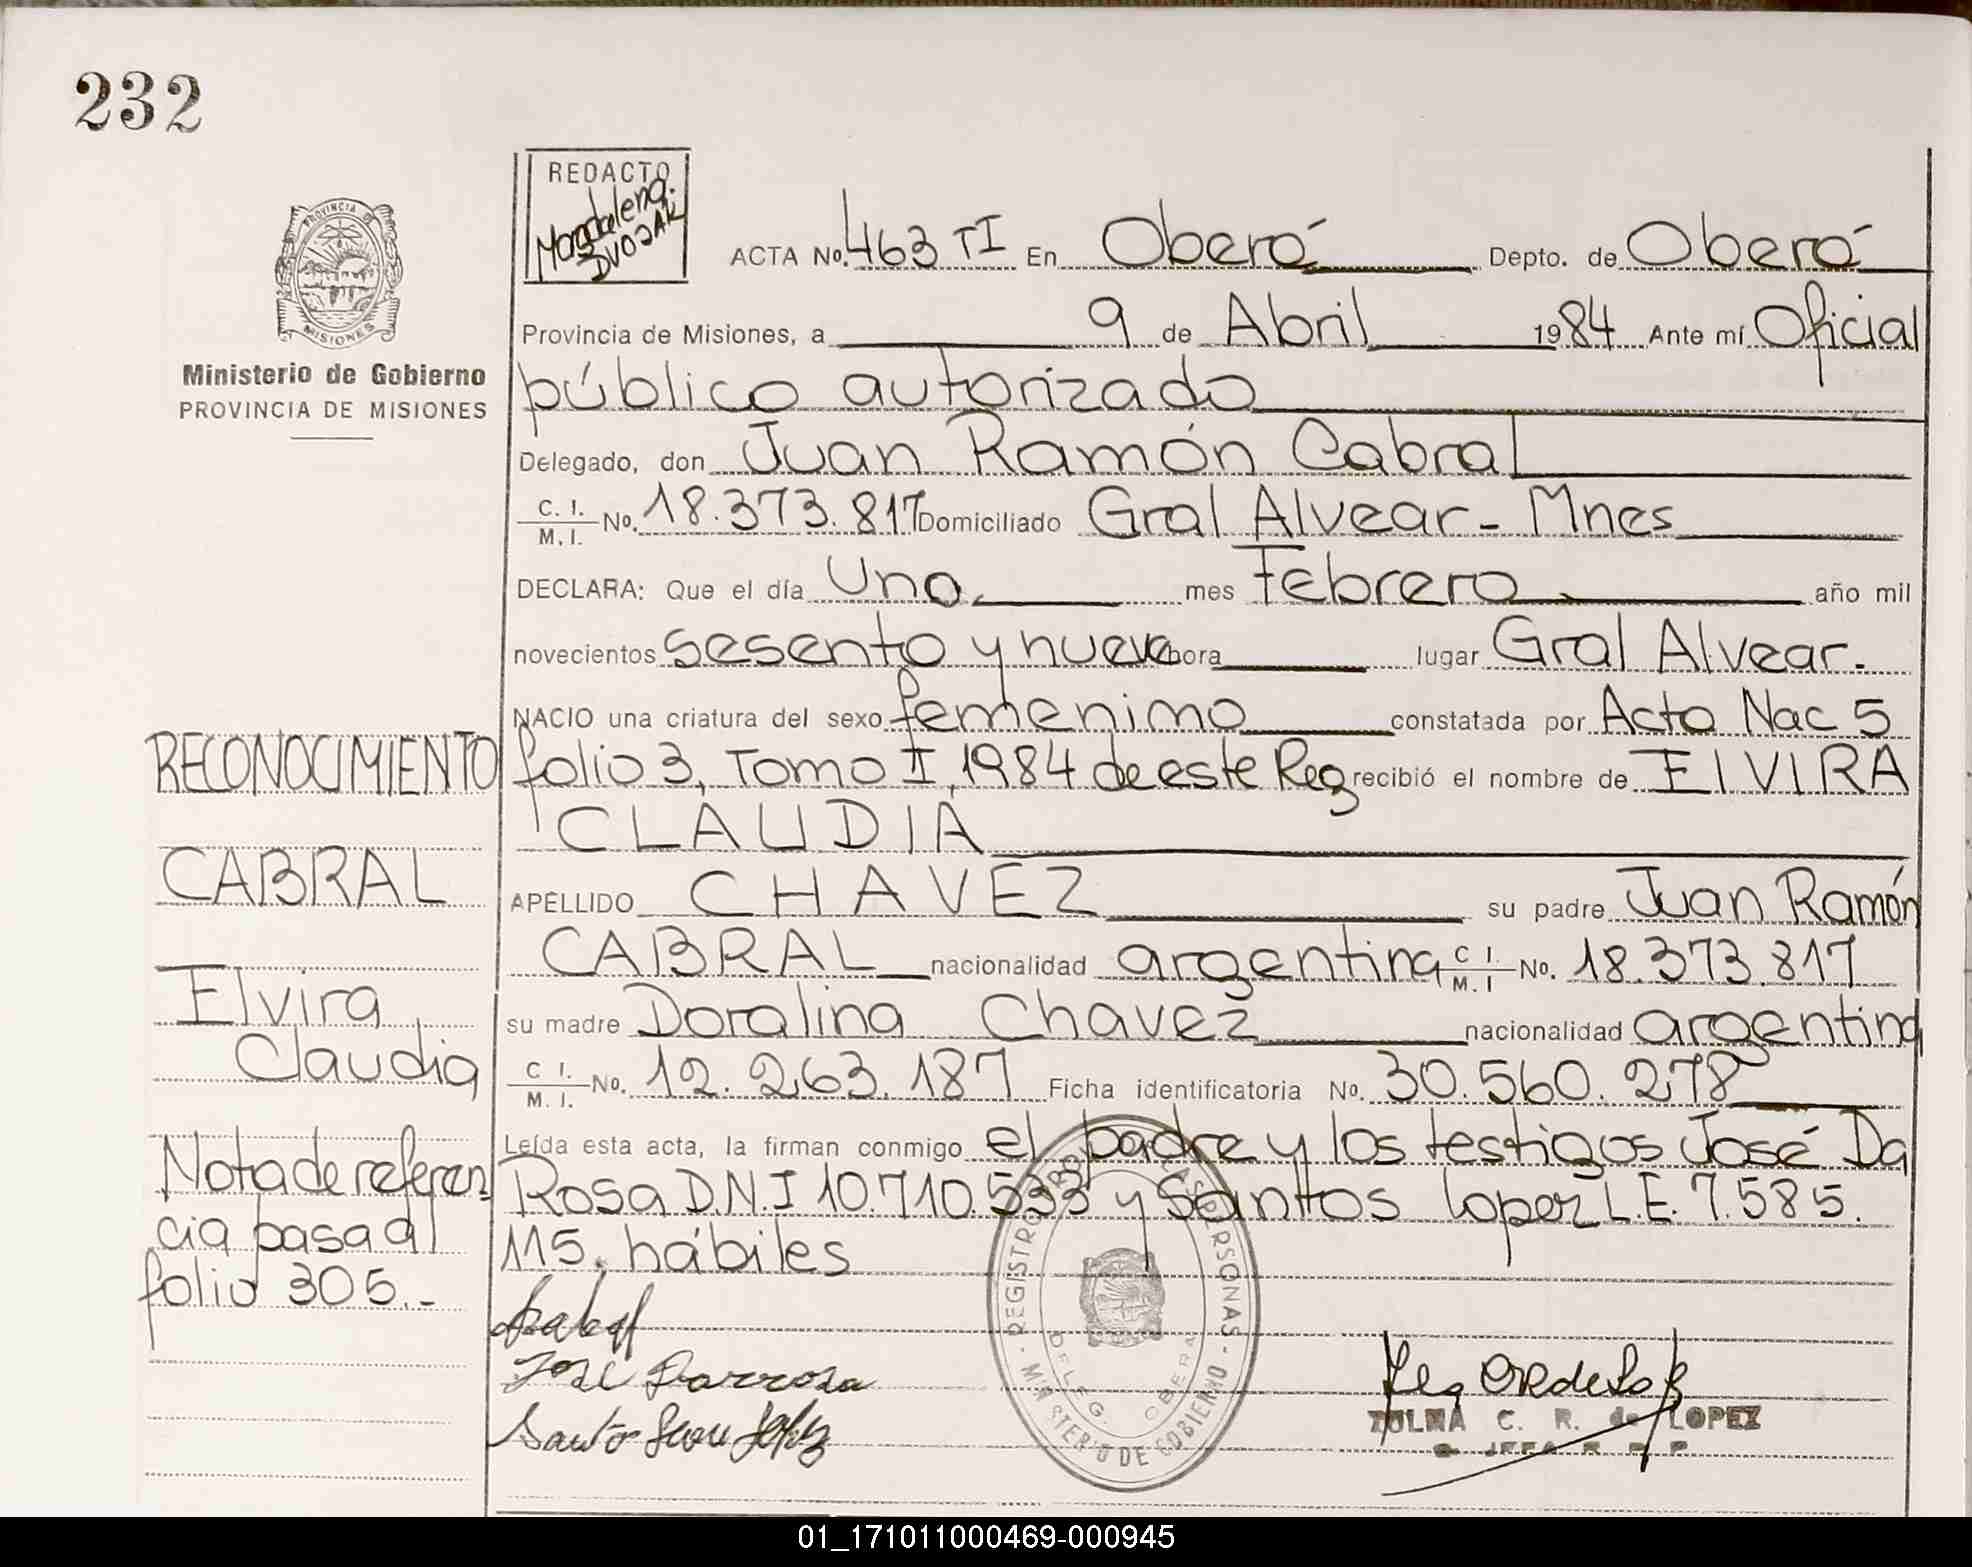 232
REDACTO
Magdalena
DVOJAK
PROVINCIA DE
MISIONES
Ministerio de Gobierno
PROVINCIA DE MISIONES
ACTA No. 463 TI En Oberá Depto. de Oberá
Provincia de Misiones, a 9 de Abril 1984 Ante mí Oficial
público autorizado
Delegado, don Juan Ramón Cabral
C. I. M. I. No. 18.373.817 Domiciliado Gral Alvear - Mnes
DECLARA: Que el día Uno mes Febrero año mil
novecientos sesenta y nueve hora lugar Gral Alvear.
NACIO una criatura del sexo femenino constatada por Acta Nac 5
folio 3, Tomo I, 1984 de este Reg recibió el nombre de ELVIRA
CLAUDIA
APELLIDO CHAVEZ su padre Juan Ramón
CABRAL nacionalidad argentina C I. M. I No. 18.373.817
su madre Doralina Chavez nacionalidad argentina
C I. M. I. No. 12.263.187 Ficha identificatoria No. 30.560.278
Leída esta acta, la firman conmigo el padre y los testigos José Da
Rosa D.N.I 10.710.533 y Santos lopez L.E. 7.585.
115, hábiles
RECONOCIMIENTO
CABRAL
Elvira
Claudia
Nota de referen
cia pasa al
folio 305.-
José Darrosa
REGISTRO PERSONAS
MINISTERIO DE GOBIERNO
DELEG. OBERA
ZULMA C. R. de LOPEZ
01_171011000469-000945